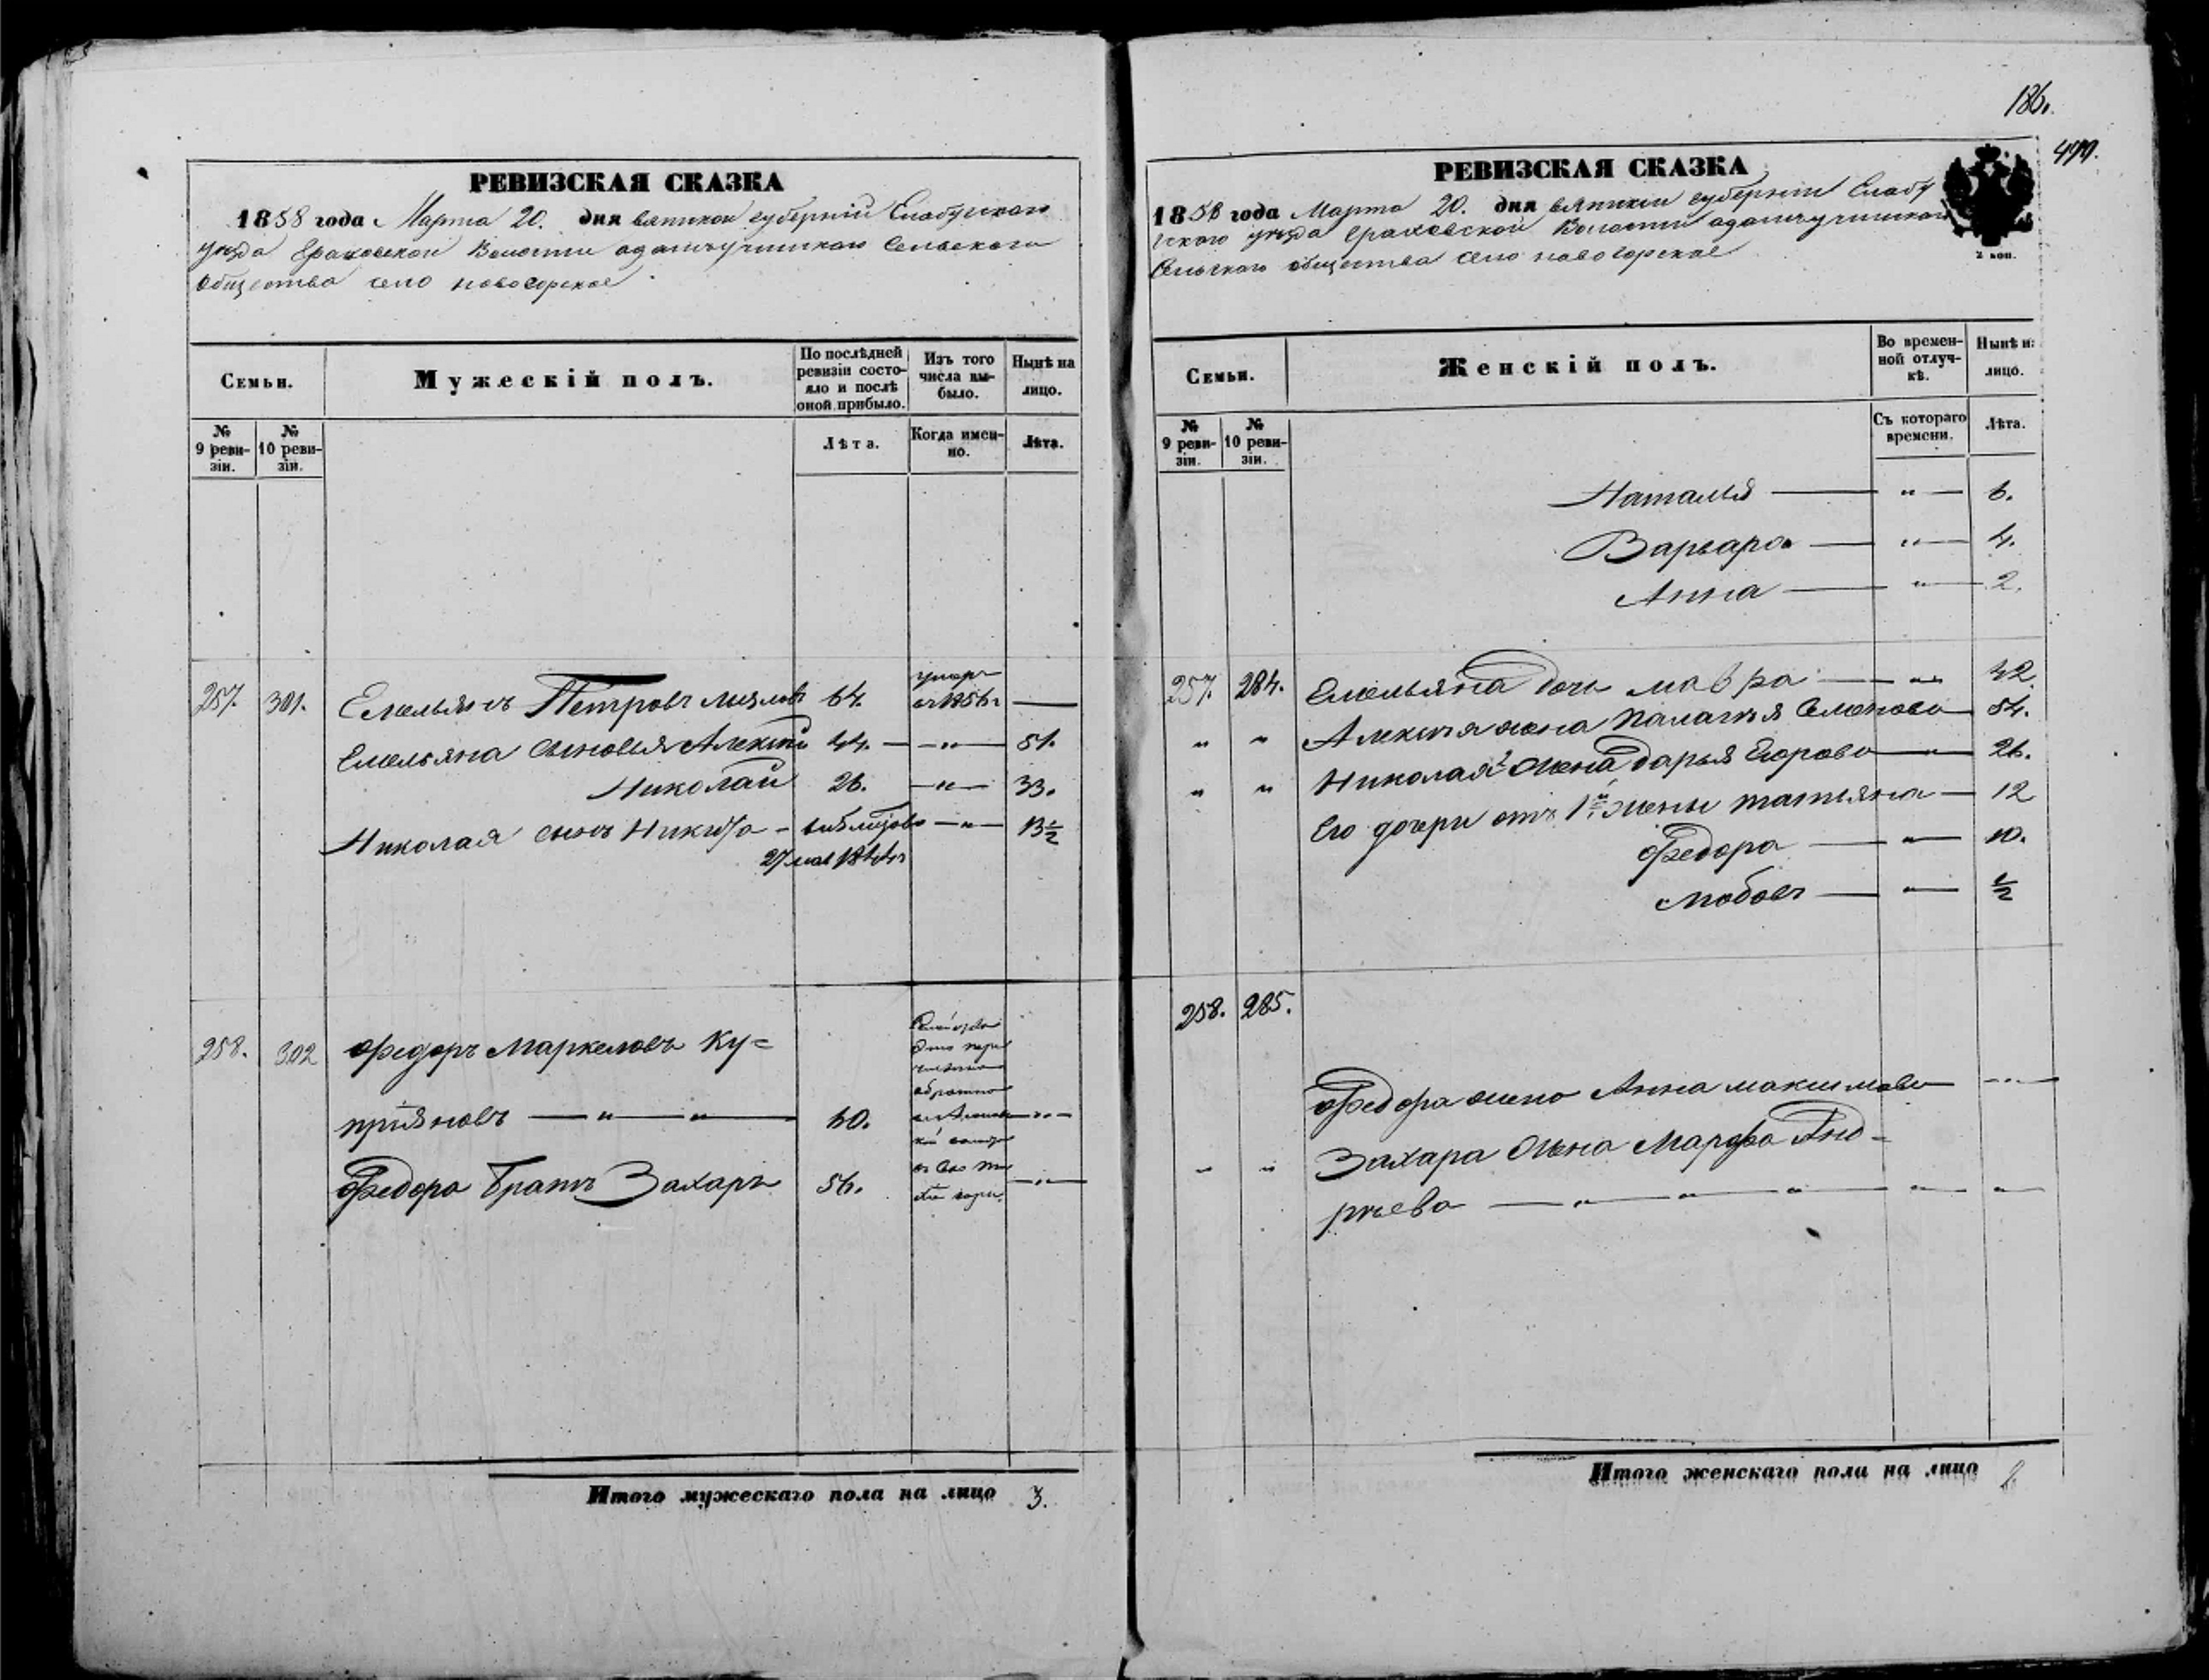 186.
499.
РЕВИЗСКАЯ СКАЗКА
1858 года Марта 20. дня Вятской губерніи Елабугскаго
уѣзда Граховской Волости Адамъучинскаго Сельскаго
Общества село Новогорское
Семьи.
Мужескій полъ.
По послѣдней ревизіи состояло и послѣ оной прибыло.
Изъ того числа выбыло.
Нынѣ на лицо.
№ 9 ревизіи.
№ 10 ревизіи.
Лѣта.
Когда именно.
Лѣта.
257. 301. Емельянъ Петровъ 64. умеръ въ 1856 г —
Емельяна сыновья Алексѣй 44. — „ — 51.
Николай 26. — „ — 33.
Николая сынъ Никита - — „ — 13 1/2
27 1844 г
258. 302 Федоръ Маркеловъ Ку=
пріяновъ — „ — „ — 40. обратно — „ —
Федора братъ Захаръ 56. — „ —
Итого мужескаго пола на лицо 3.
РЕВИЗСКАЯ СКАЗКА
1858 года Марта 20. дня Вятской губерніи Елабу
гскаго уѣзда Граховской Волости Адамъучинскаго
Сельскаго общества село Новогорское
2 коп.
Семьи.
Женскій полъ.
Во временной отлучкѣ.
Нынѣ на лицо.
№ 9 ревизіи.
№ 10 ревизіи.
Съ котораго времени.
Лѣта.
Наталья — „ — 6.
Варвара — „ — 4.
Анна — „ — 2.
257. 284. Емельяна дочь Мавра — „ 42
„ „ Алексѣя жена Палагѣя Семенова — 54.
„ „ Николая 2 жена Дарья Егорова — „ — 26.
Его дочери отъ 1й жены Татьяна — 12
Федора — „ — 10.
Любовь — „ — 1/2
258. 285.
Федора жена Анна Максимова — „ —
„ „ Захара жена Марфа Анд=
рѣева — „ — „ — „ — „ — „ —
Итого женскаго пола на лицо